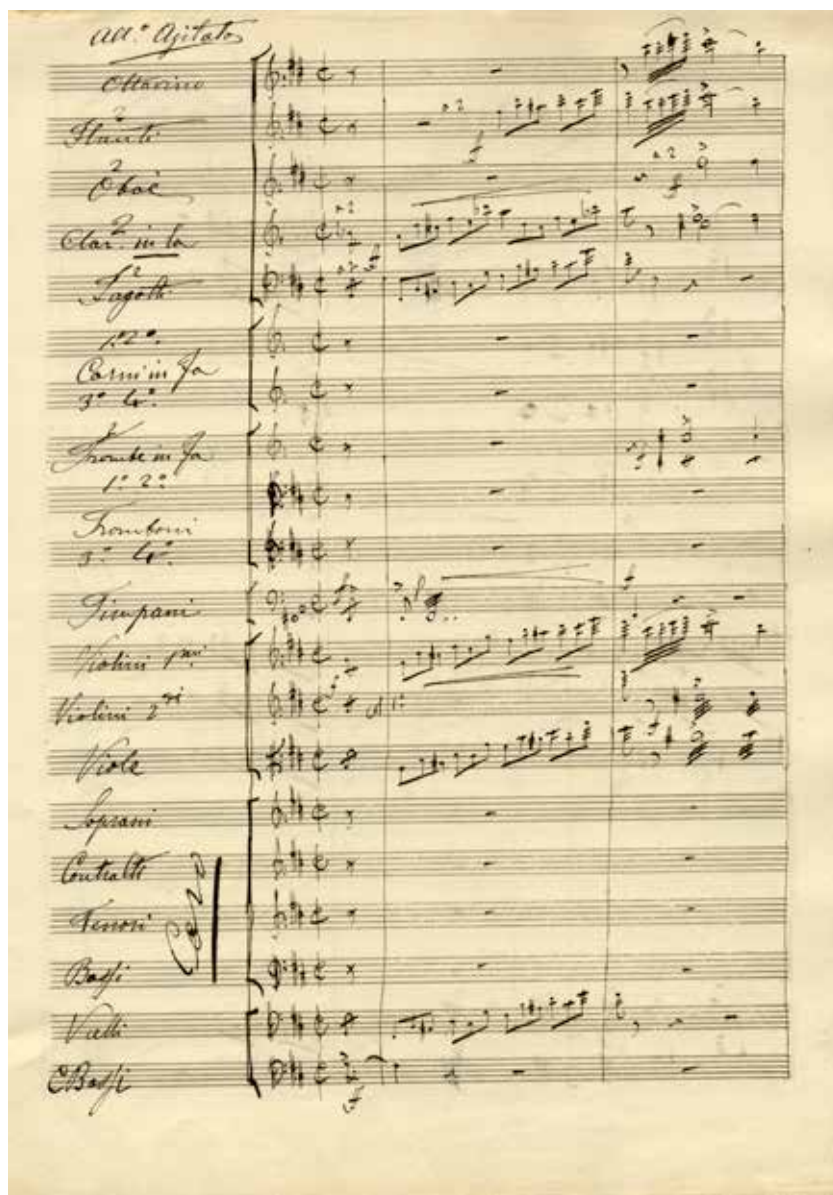 All.º Agitato
Ottavino
2 Flauti
2 Oboè
2 Clar.ⁱ in la
2 Fagotti
1.º 2.º
Corni in Fa
3.º 4.º
2 Trombe in Fa
1.º 2.º
Tromboni
3.º 4.º
Timpani
Violini 1.mi
Violini 2.di
Viole
Soprani
Contralti
Coro
Tenori
Bassi
Vcelli
C Bassi